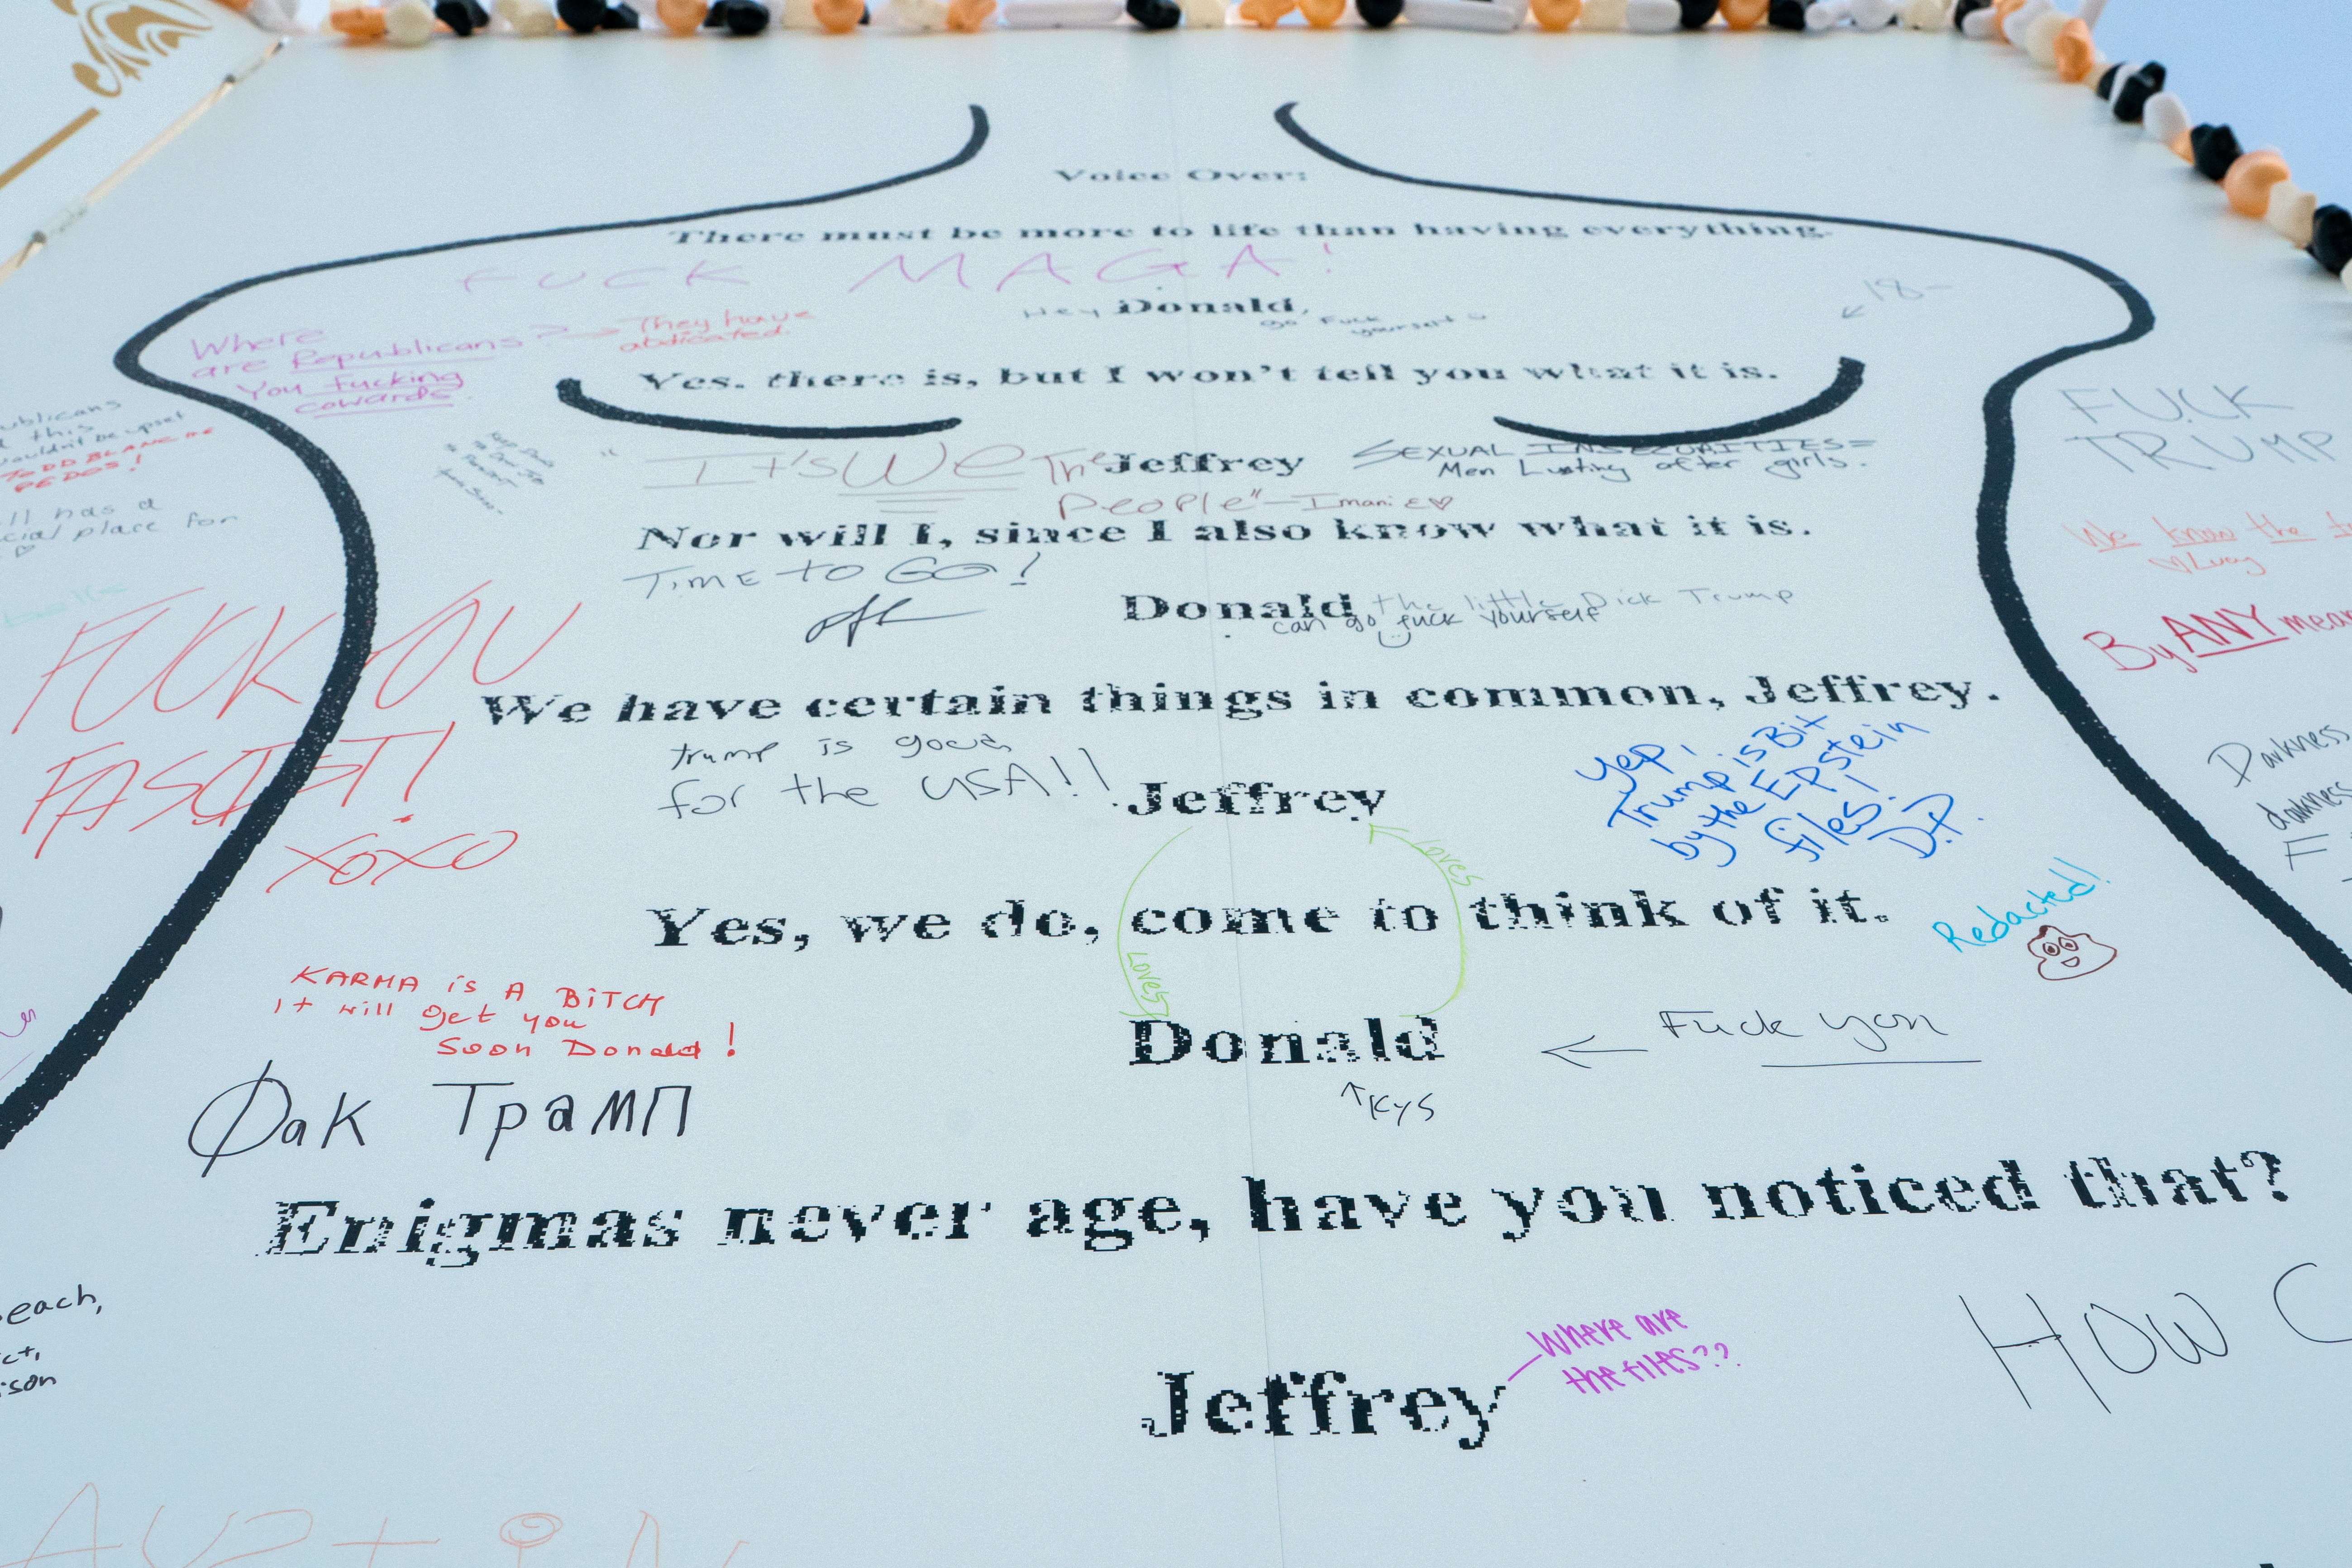 Voice Over:
There must be more to life than having everything.
FUCK MAGA!
Hey Donald,
go Fuck
yourself
18-
Where
are Republicans?
You fucking
cowards.
They have
abdicated
Yes, there is, but I won't tell you what it is.
"It's We The
People" - Imani
Jeffrey
SEXUAL INSECURITIES=
Men Lusting after girls.
FUCK
TRUMP
this
TODD BLANCHE
PEDOS!
has a
place for
Nor will I, since I also know what it is.
TIME TO GO!
We know the
Lucy
Donald
the little Dick Trump
can go fuck yourself
FUCK YOU
FASCIST!
XOXO
By ANY
We have certain things in common, Jeffrey.
trump is good
for the USA!!
Jeffrey
Yep,
Trump is Bit
by the EPstein
files!
D.P.
Darkness
darkness
Loves
Yes, we do, come to think of it.
Redacted!
Loves
KARMA is A BiTCH
it will get you
Soon Donald!
Donald
Fuck you
KYS
Фак Трамп
Enigmas never age, have you noticed that?
HOW
Where are
the files??
Jeffrey